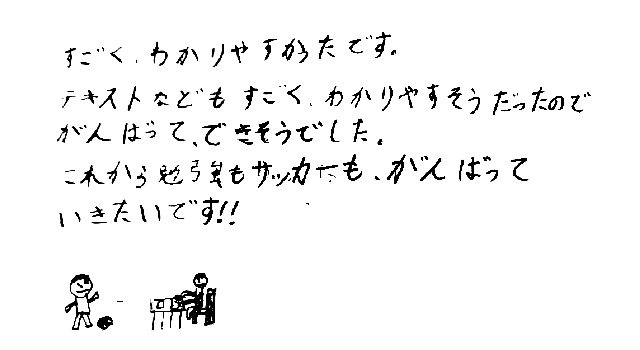 すごく、わかりやすかったです。
テキストなどもすごく、わかりやすそうだったので
がんばって、できそうでした。
これから勉強もサッカーも、がんばって
いきたいです!!